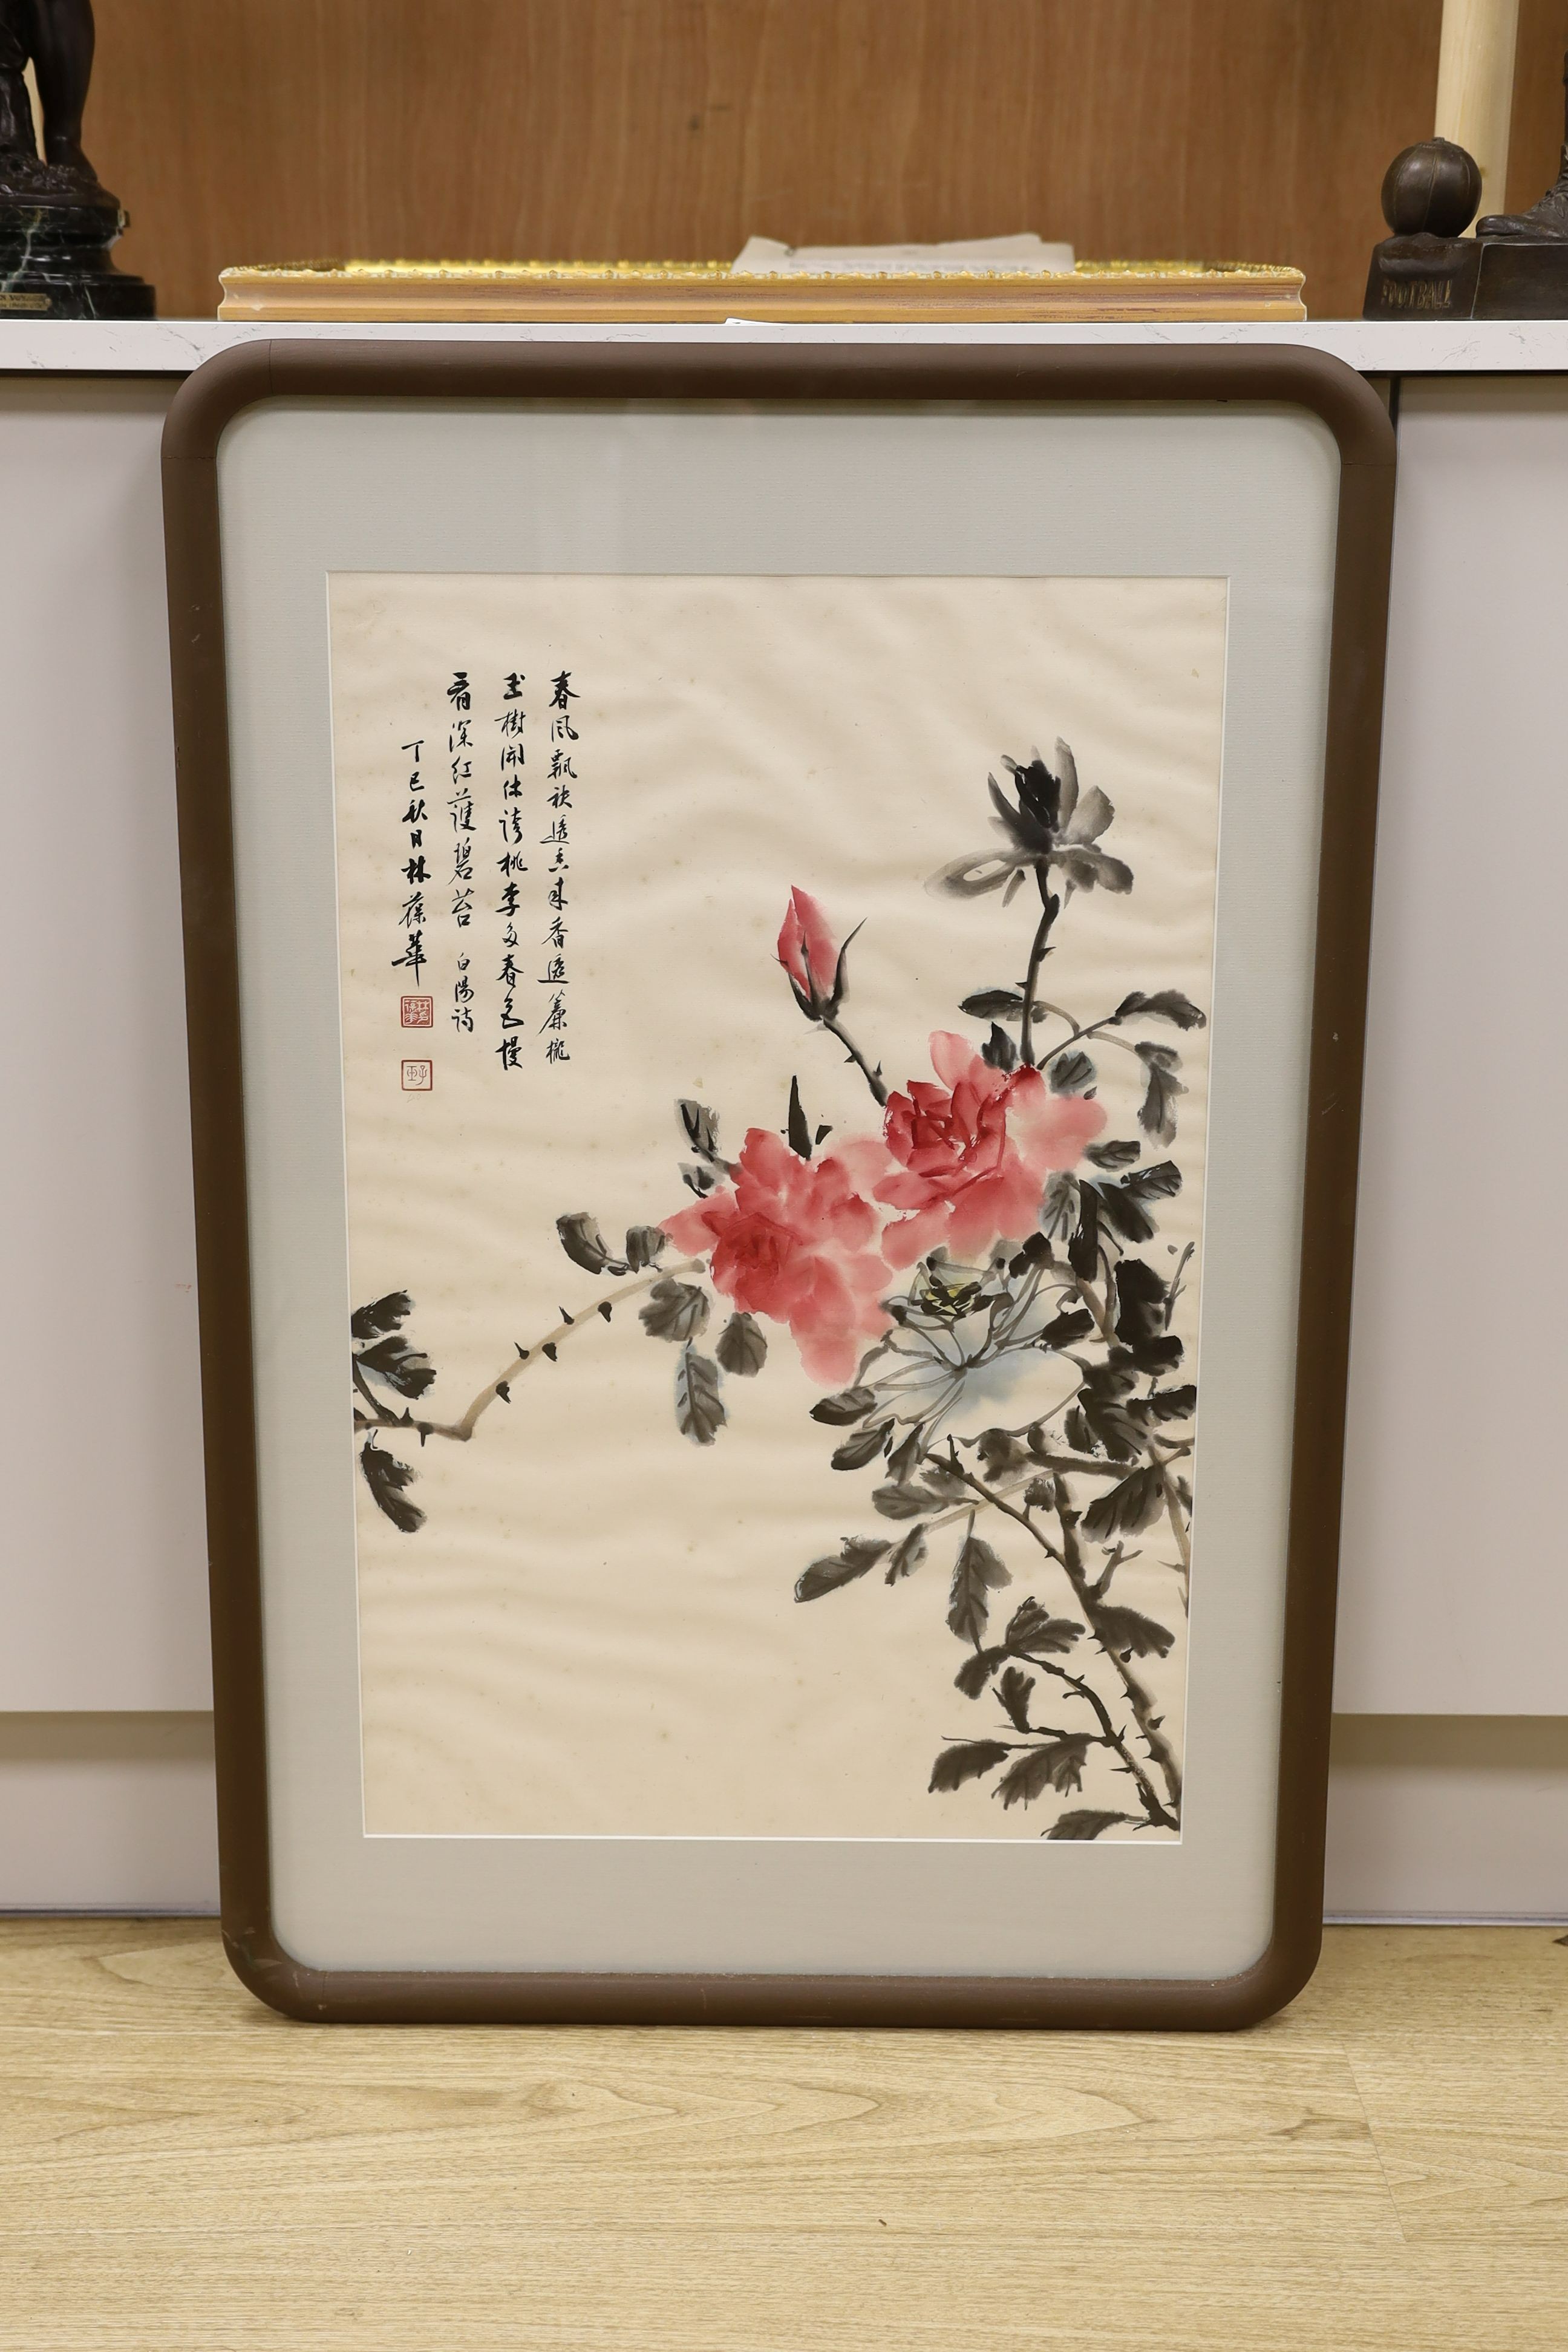 春風飄袂遞杰來香遞簾櫳
玉樹開休誇桃李多春色慢
看深紅護碧苔 白陽詩
丁巳秋月林葆華
FOOTBALL